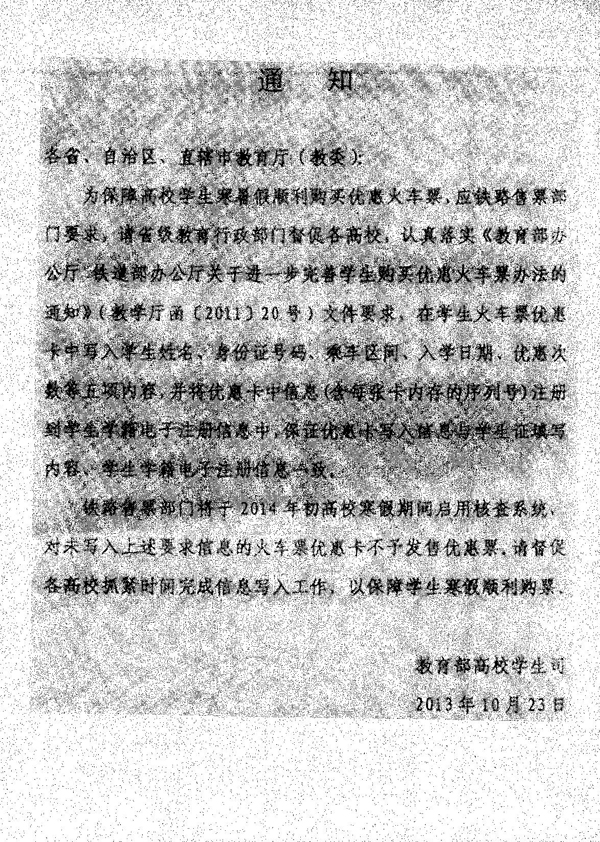 通 知
各省、自治区、直辖市教育厅（教委）：
为保障高校学生寒暑假顺利购买优惠火车票，应铁路售票部
门要求，请省级教育行政部门督促各高校，认真落实《教育部办
公厅 铁道部办公厅关于进一步完善学生购买优惠火车票办法的
通知》（教学厅函〔2011〕20号）文件要求，在学生火车票优惠
卡中写入学生姓名、身份证号码、乘车区间、入学日期、优惠次
数等五项内容，并将优惠卡中信息(含每张卡内存的序列号)注册
到学生学籍电子注册信息中，保证优惠卡写入信息与学生证填写
内容、学生学籍电子注册信息一致。
铁路售票部门将于2014年初高校寒假期间启用核查系统，
对未写入上述要求信息的火车票优惠卡不予发售优惠票。请督促
各高校抓紧时间完成信息写入工作，以保障学生寒假顺利购票。
教育部高校学生司
2013年10月23日